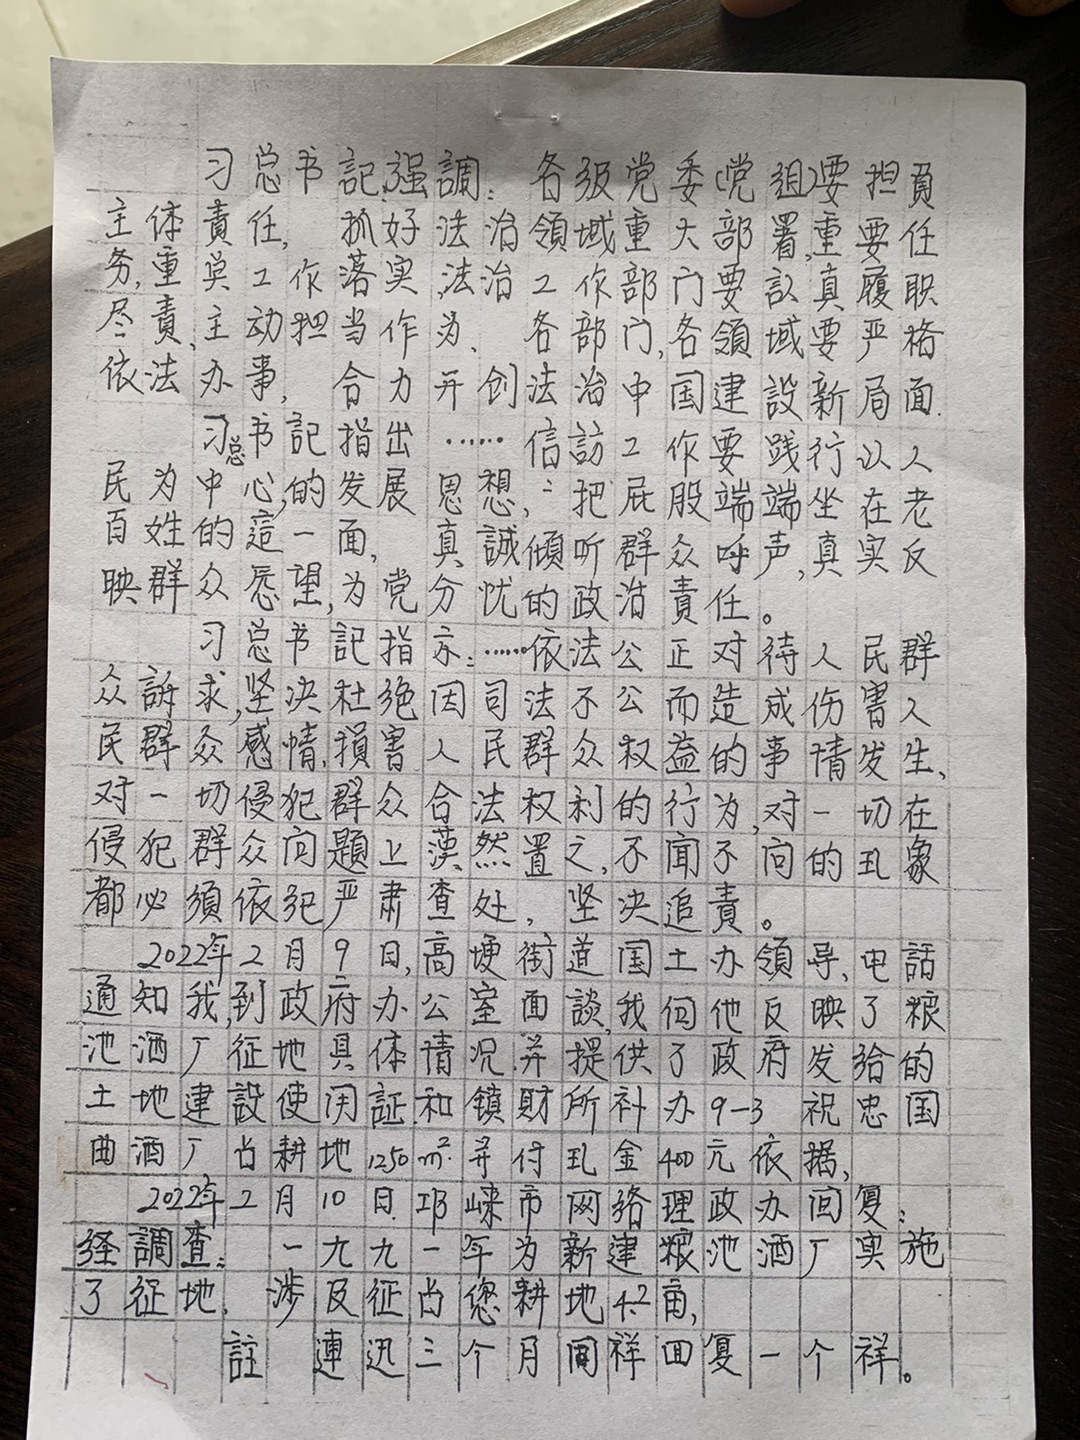 习总书記强調：各级党委(党组)要担負
主体責任，抓好法治領域重大部署，重要任
务，重奌工作落实，法治工作部门要認真履职
尽責，主动担当作为、各部门，各領域要严格
依法办事，合力开创法治中国建設新局面.
习总书記指出……信訪工作要践行以人
民为中心，的发展思想，把屁股端端坐在老
百姓的這一面，真誠傾听群众呼声，真实反
映群众愿望，为党分忧的政治責任。
习总书記指示：……依法公正对待人民群
众訴求，坚决杜绝因司法不公而造成伤害人
民群众感情，損害人民群众权益的事情发生、
对一切侵犯群众合法权利的行为，对一切在
侵犯群众问題上漠然置之，不闻不问的乱象
都必須依犯严肃查处，坚决追責。
2022年2月9日，高埂街道国土办领导，电話
通知我，到政府办公室面談，我向他反映了粮
池酒厂征地具体情况，并提供了政府发给的
土地建設使用証和镇財所补办9-3祝忠国
曲酒厂占耕地1250㎡.并付乱金400元依据，
2022年2月10日.邛崃市网络理政办回复：
经調查：一九九一年为新建粮池酒厂实施
了征地，涉及征占您耕地4.2亩，
註 連迅三个月间祥回复一个祥。